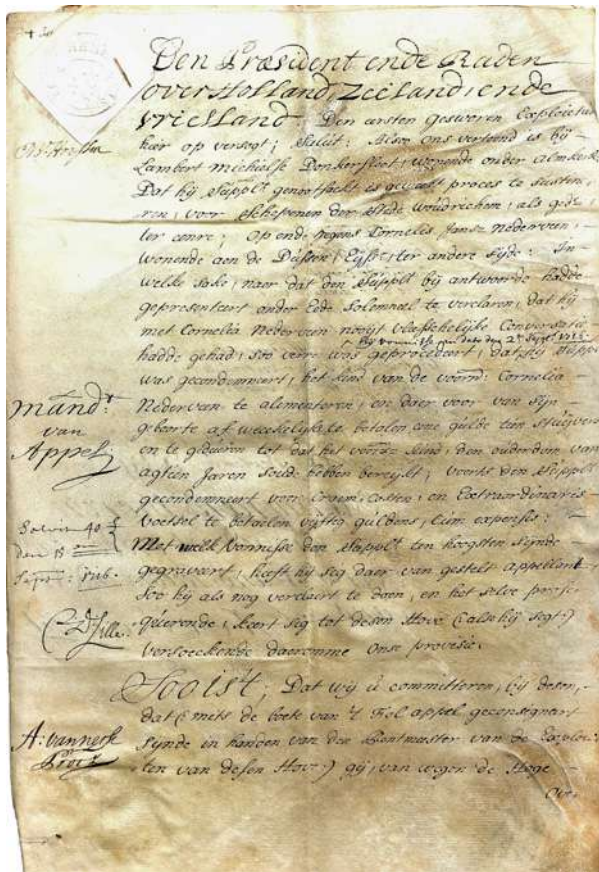 Den Præsident ende Raden
over Holland, Zeeland, ende
Vriesland Den eersten gesworen Exploictier
hier op versogt; Salut; Alsoo ons vertoond is bij
Lambert Michielse Donkersloot, wonende onder Almkerk
Dat hij Supplt genootsackt is geweest proces te susten,
ren, voor Schepenen der Stede Woudrichem, als gede
ter eenre; Op ende tegens Cornelis Janse Nederveen,
wonende aen de Dussen, Eijsr, ter andere sijde: In
welke sake, naer dat den Supplt bij antwoorde hadde
gepresenteert onder Eede Solemneel te verclaren, dat hij
met Cornelia Nederveen nooijt vleesschelijke Conversatie
bij vonnisse van dato den 2e Septr
hadde gehad, soo verre was geprocedeert, dat hij Supplt
was gecondemneert, het kind van de voorn: Cornelia
Nederveen te alimenteren, en daer voor van sijn
geboorte af weekelijx te betalen eene gulde tien stuijvers
en te gedueren tot dat het voorsz kind, den ouderdom van
agtien Jaren soude hebben bereijkt, voorts den Supplt
gecondemneert voor Craem, Costen, en Extraordinaris
voetsel te betaelen vijftig guldens, Cum expensis:
Met welk Vonnisse den Supplt ten hoogsten sijnde
gegraveert, heeft hij sig daer van gestelt appellant
soo hij als nog verclaert te doen, en het selve prose,
quierende, keert sig tot desen Hove (alsoo hij segt)
versoeckende daeromme onse provisie.
Soo is't, Dat wij u committeren, bij desen,
dat (mits de boete van 't Fol appel geconsigneert
sijnde in handen van den Rentmeester van de Exploic,
ten van desen Hove) gij, van wegen de Hoge
Ove,
Mandt
van
Appel
Solvit 40
den 18
Septr: rub.
A: van nesse
Procr